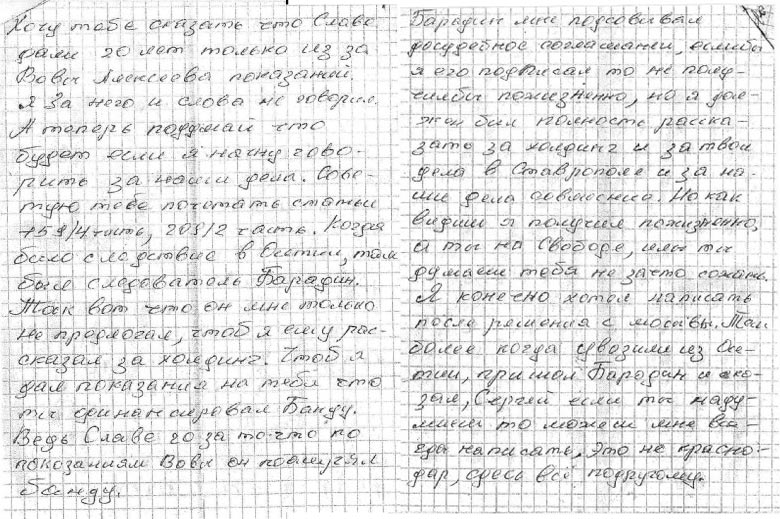 Хочу тебе сказать что Славе
дали 20 лет только из за
Вовы Алексеева показаний.
Я За него и слова не говорил.
А теперь подумай что
будет если я начну гово-
рить за наши дела. Сове-
тую тебе почетать статьи
159/4 часть, 209/2 часть. Когда
было следствие в Осетии, там
был следователь Барадин.
Так вот что он мне только
не предлогал, чтоб я ему рас-
сказал за холдинг. Чтоб я
дал показания на тебя что
ты финансировал Банду.
Ведь Славе 20 за то что по
показаниям Вовы он
банду.
Барадин мне подсовывал
досудебное соглашение, если бы
я его подписал то не полу-
чил бы пожизненно, но я дол-
жен был полность расска-
зать за холдинг и за твои
дела в Ставрополе и за на-
ши дела совмесние. Но как
видиш я получил пожизненно,
а ты на Свободе, или ты
думаеш тебя не зачто сожать.
Я конечно хотел написать
после решения с москвы. Тем
более когда увозили из Осе-
тии, пришол Бародин и ско-
зал, Сергей если ты наду-
маеш то можеш мне все-
гда написать, Это не красно-
дар, сдесь всё подругому.